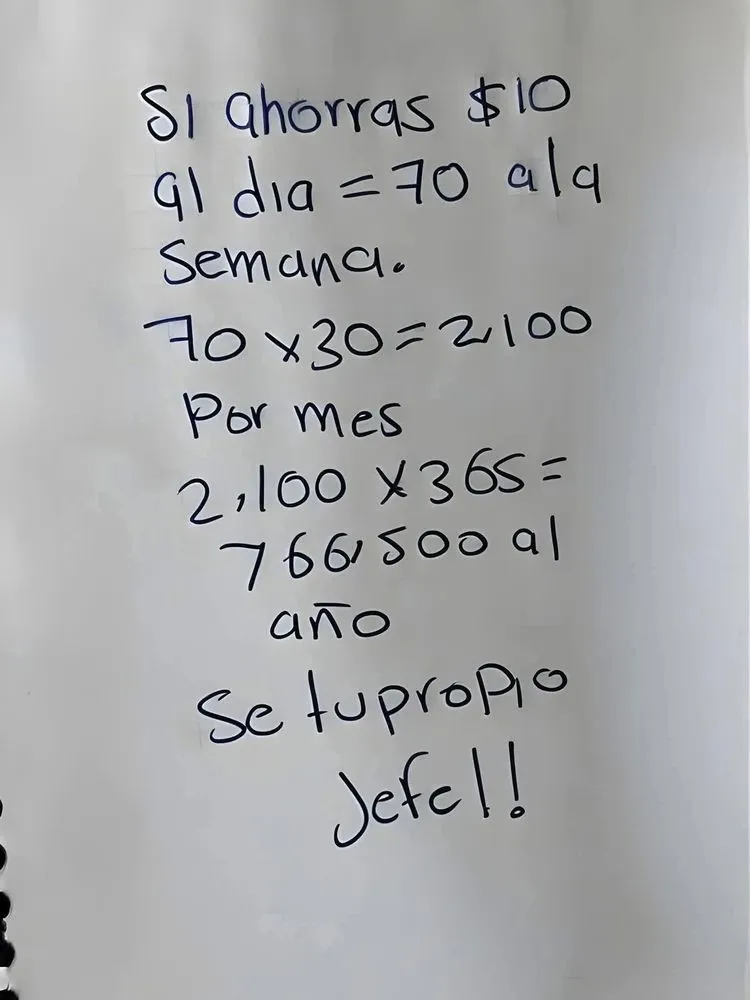 Si ahorras $10
al dia = 70 ala
Semana.
70 x 30 = 2,100
Por mes
2,100 x 365 =
766,500 al
año
Se tu propio
Jefe!!